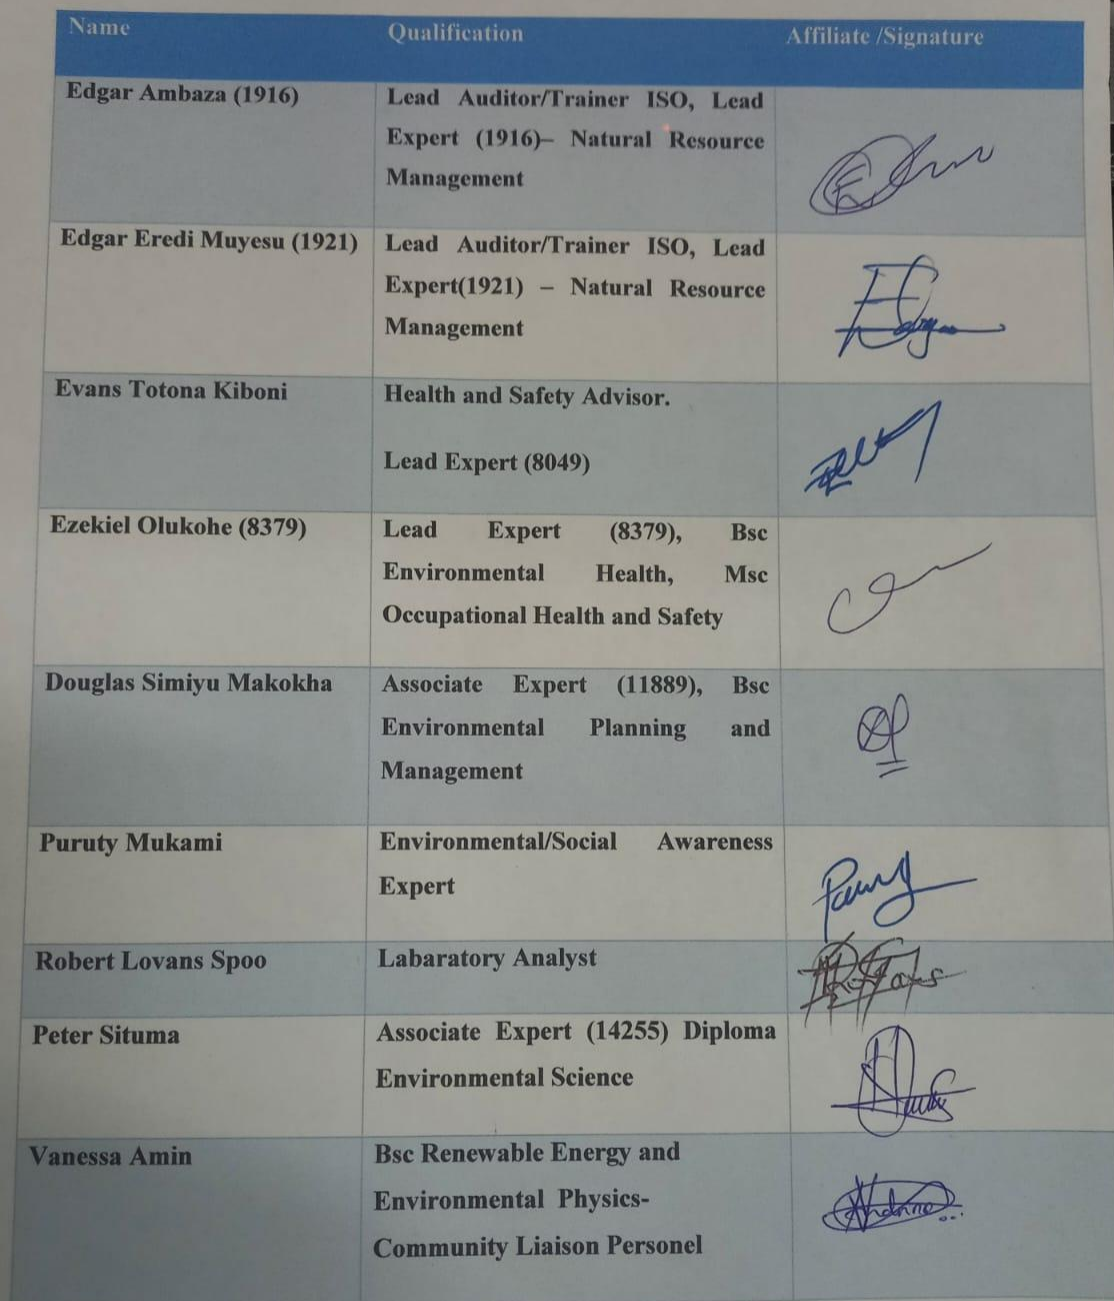 Name Qualification Affiliate /Signature
Edgar Ambaza (1916) Lead Auditor/Trainer ISO, Lead
Expert (1916)– Natural Resource
Management
Edgar Eredi Muyesu (1921) Lead Auditor/Trainer ISO, Lead
Expert(1921) – Natural Resource
Management
Evans Totona Kiboni Health and Safety Advisor.
Lead Expert (8049)
Ezekiel Olukohe (8379) Lead Expert (8379), Bsc
Environmental Health, Msc
Occupational Health and Safety
Douglas Simiyu Makokha Associate Expert (11889), Bsc
Environmental Planning and
Management
Puruty Mukami Environmental/Social Awareness
Expert
Robert Lovans Spoo Labaratory Analyst
Peter Situma Associate Expert (14255) Diploma
Environmental Science
Vanessa Amin Bsc Renewable Energy and
Environmental Physics-
Community Liaison Personel